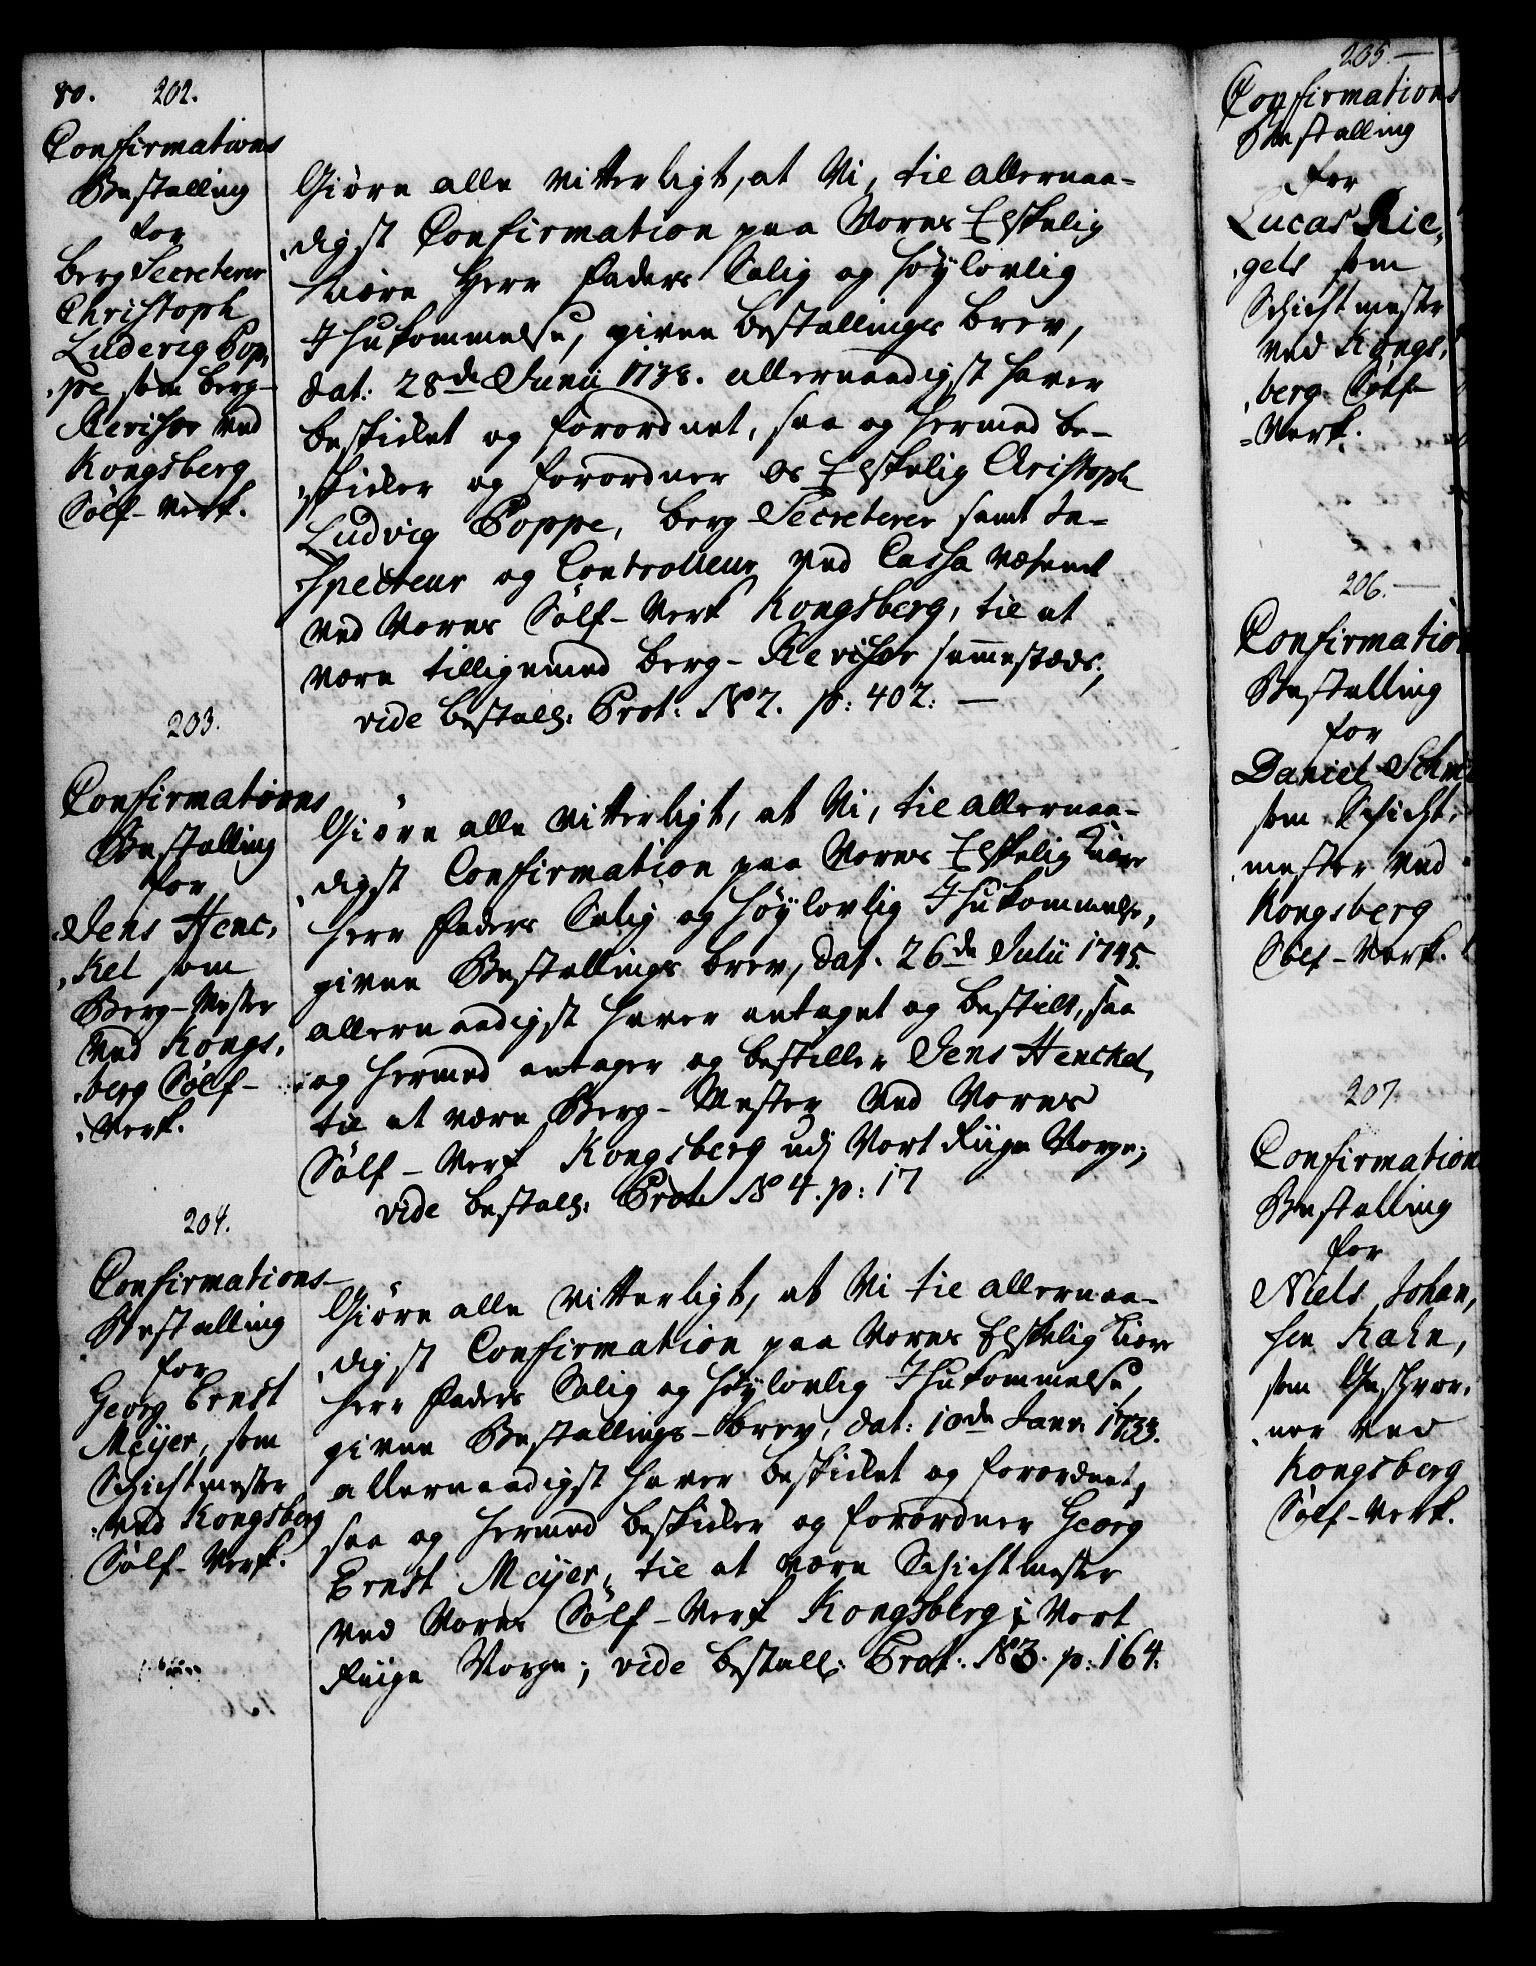 80. 202.
Confirmations
Bestalling
for
Berg Secreterer
Christoph
Luderig Pop,
,pe som Berg-
Revisor ved
Kongsberg
Sølf-Verk.
Giøre alle Vitterligt, at Vi, til allernaa-
,digst Confirmation paa Vores Elskelig
kiære Herr Faders Salig og Høylovlig
Ihukommelse, givne Bestallings Brev,
dat: 28de Junii 1738. allernaadigst haver
beskikket og forordnet, saa og hermed be-
,skikker og forordner Os Elskelig Christoph
Ludvig Poppe, Berg-Secreterer samt In-
specteur og Controlleur ved Cassa Væsenet
ved Vores Sølf-Verk Kongsberg, til at
være tilligemed Berg-Revisor sam̄esteds;
vide Bestall: Prot: No 2. p: 402. —
203.
Confirmations
Bestalling
for
Jens Henc,
,kel som
Berg-Mester
ved Kongs,
,berg Sølf-
,Verk.
Giøre alle Vitterligt, at Vi, til allernaa-
,digst Confirmation paa Vores Elskelig kiære
Herr Faders Salig og Høylovlig Ihukommelse,
givne Bestallings Brev, dat. 26de Julii 1745.
allernaadigst haver antaget og bestilt, saa
og hermed antager og bestiller Jens Henckel,
til at være Berg-Mester ved Vores
Sølf-Verk Kongsberg udj Vort Riige Norge;
vide Bestall: Prot: No 4. p: 17
204.
Confirmations-
Bestalling
for
Georg Ernst
Meijer, som
Schichtmester
ved Kongsberg
Sølf-Verk.
Giøre alle Vitterligt, at Vi til allernaa-
,digst Confirmation paa Vores Elskelig kiære
Herr Faders Salig og Høylovlig Ihukommelse,
givne Bestallings-Brev, dat: 10de Janr: 1733.
allernaadigst haver beskikket og forordnet,
saa og hermed beskikker og forordner Georg
Ernst Meijer, til at være Schichtmester
ved Vores Sølf-Verk Kongsberg i Vort
Riige Norge; vide Bestall: Prot: No 3. p: 164.
205. —
Confirmations
Bestalling
for
Lucas Rie,
,gels som
Schichtmester
ved Kongs,
,berg Sølf-
-Verk.
206. —
Confirmation
Bestalling
for
Daniel Schm
som Schicht,
,mester ved
Kongsberg
Sølf-Verk.
207.
Confirmation
Bestalling
for
Niels Johan,
sen Kahn,
som Geschwor,
,ner ved
Kongsberg
Sølf-Verk.